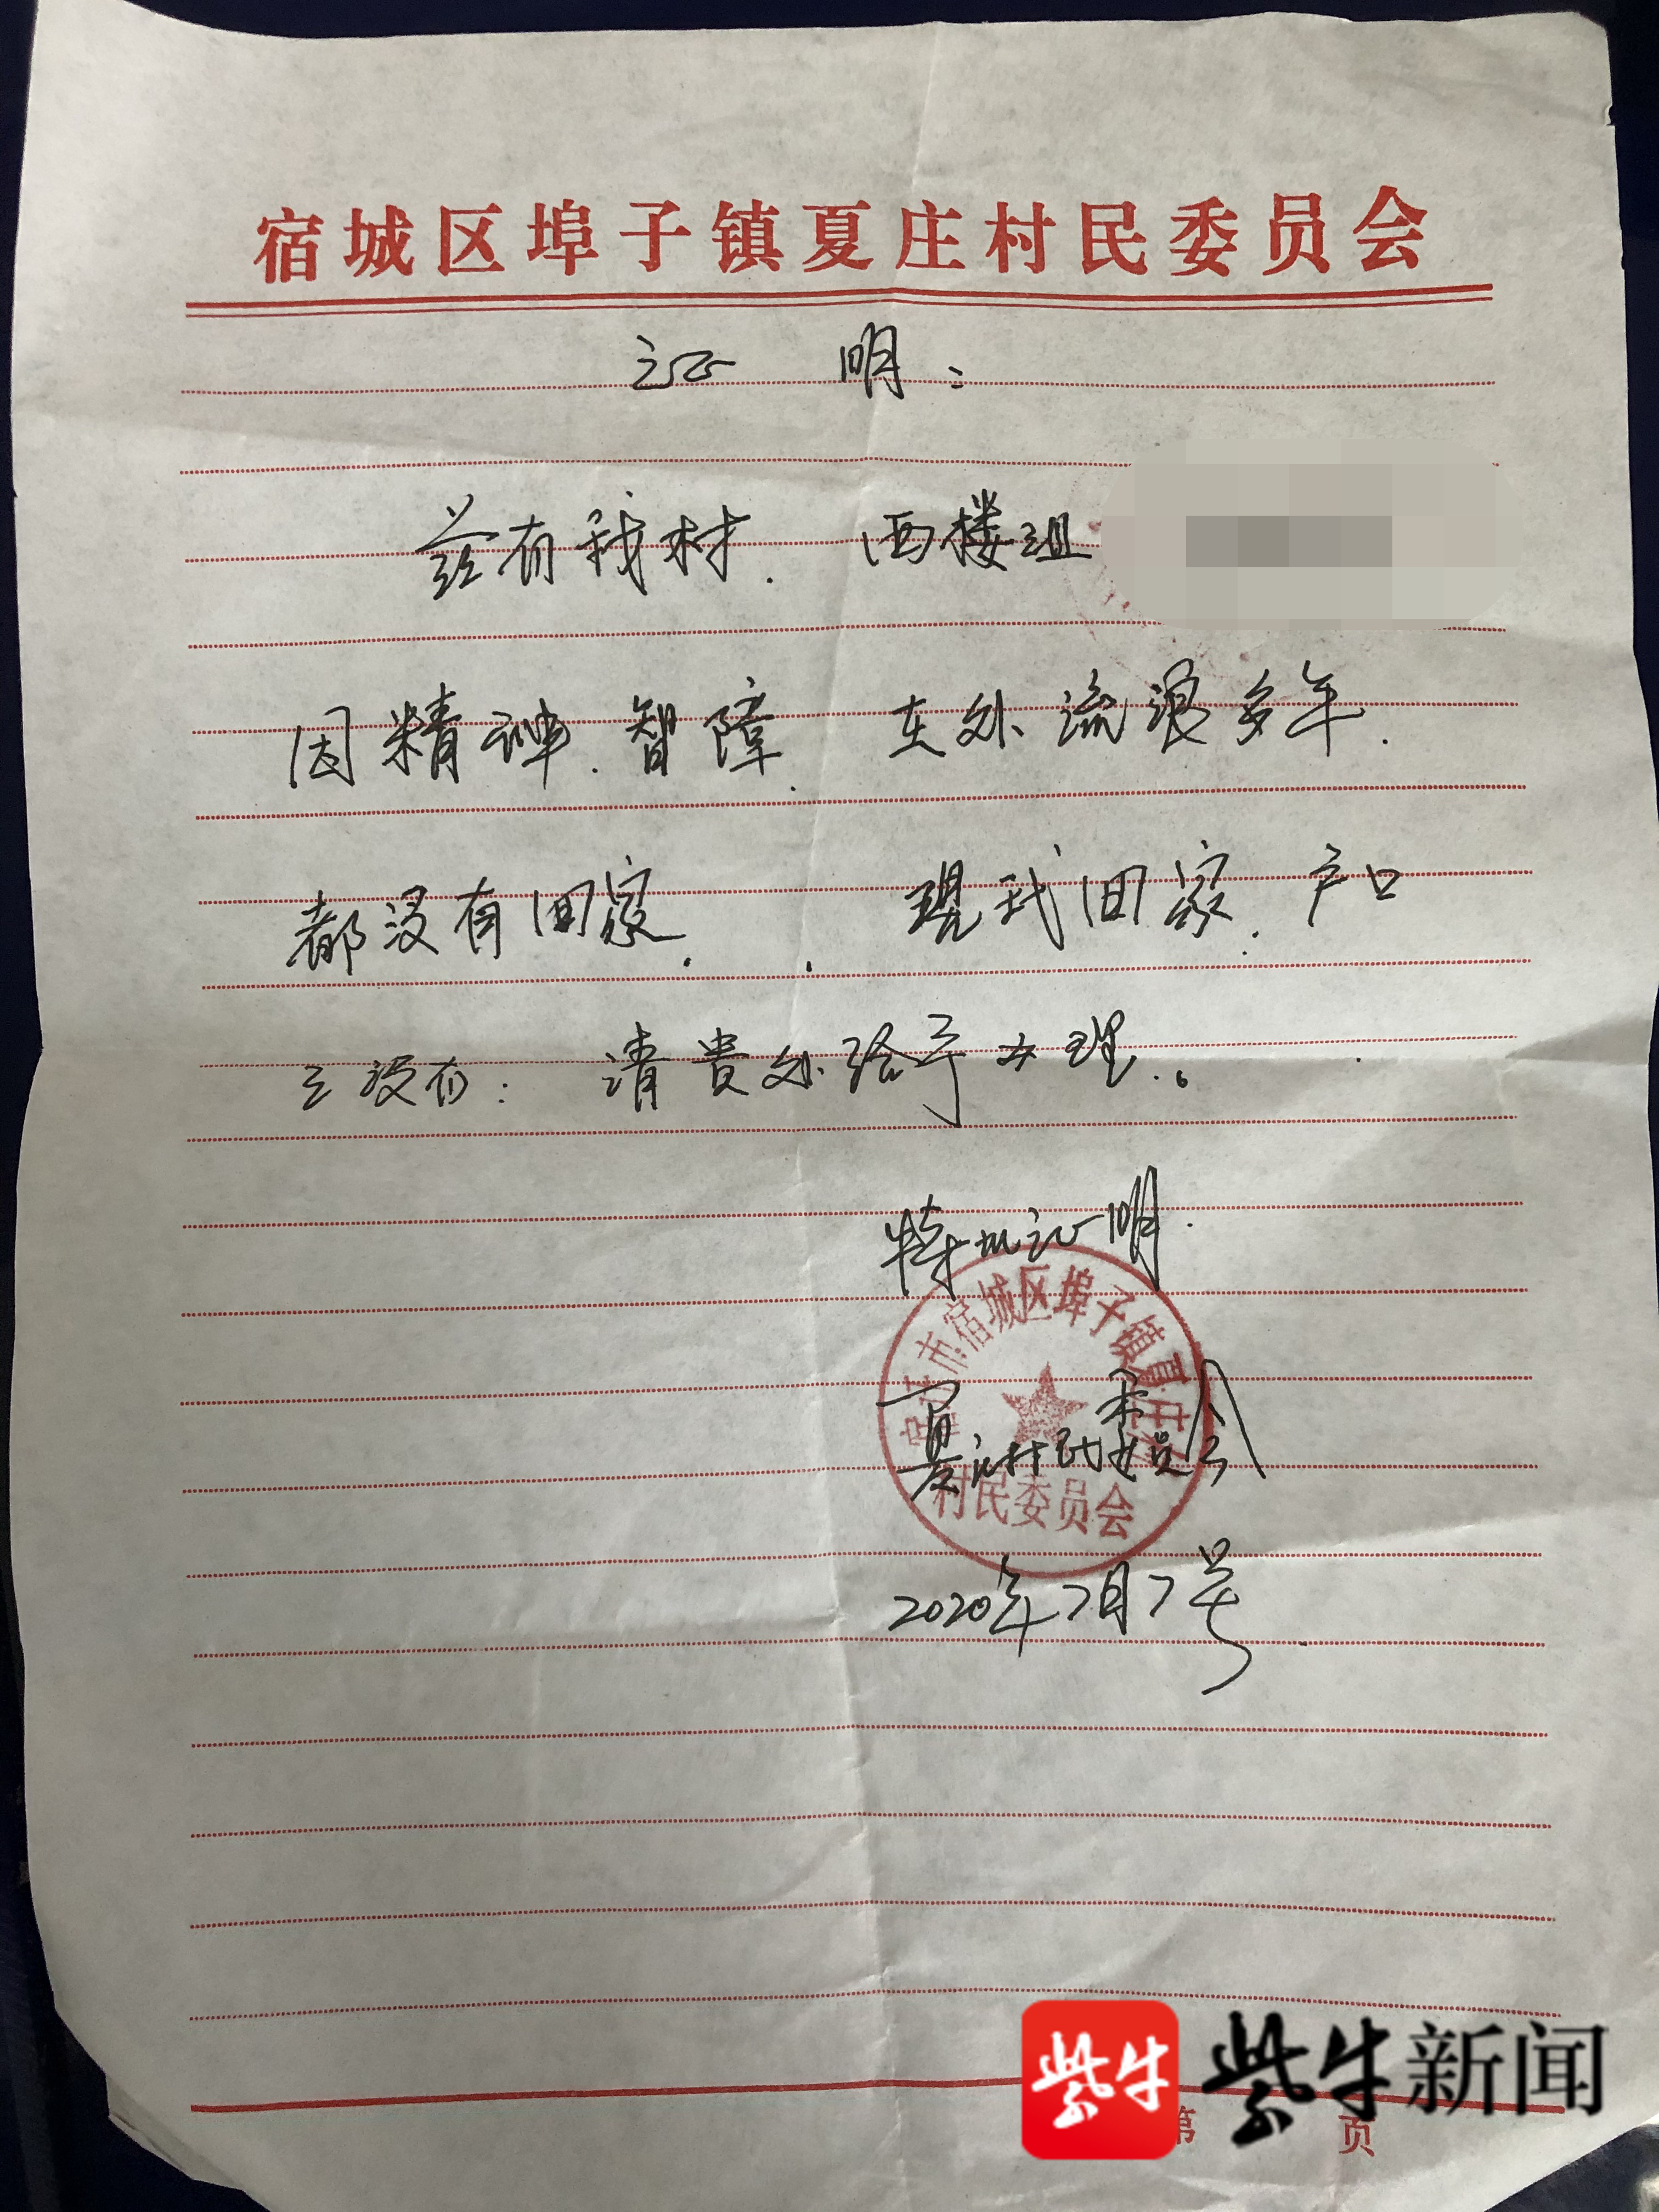 宿城区埠子镇夏庄村民委员会
证 明：
兹有我村. 西楼组
因精神.智障. 在外流浪多年.
都没有回家. 现找回家. 户口
没有: 请贵处给予办理.。
特此证明.
市宿城区埠子镇夏庄
村民委员会
夏庄村民委员会
2020年7月7号
紫牛
紫牛新闻
第 页